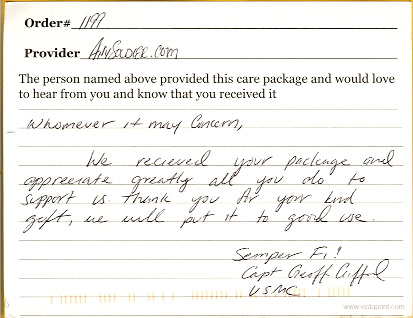 Order# 1197
Provider AnySoldier.com
The person named above provided this care package and would love
to hear from you and know that you received it
Whomever it may Concern,
We recieved your package and
appreciate greatly all you do to
support us. Thank you for your kind
gift, we will put it to good use.
Semper Fi!
Capt Geoff
USMC
www.vistaprint.com